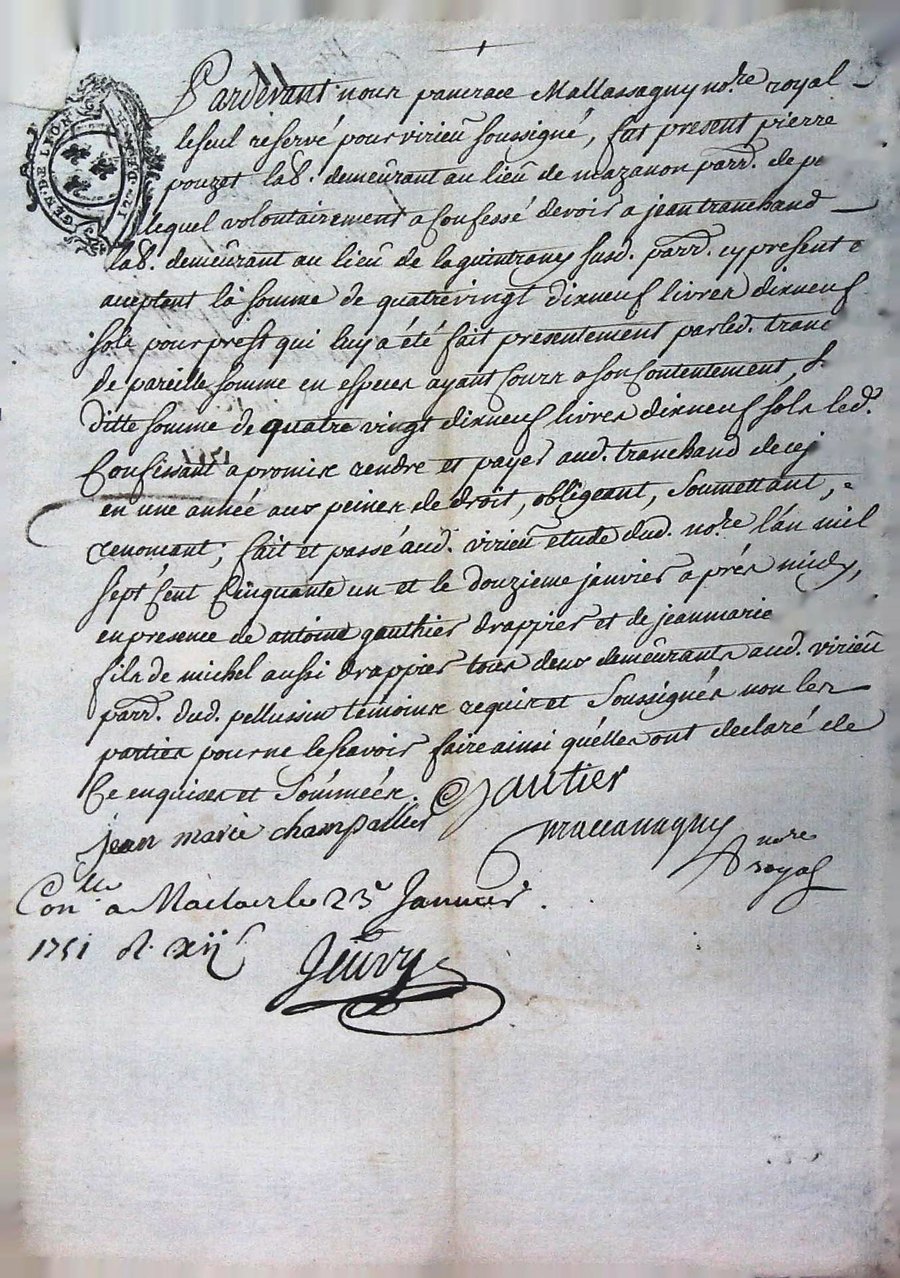 GEN. DE LION
Pardevant nous pancrace Mallassagny no.re royal
le seul réservé pour virieu soussigné, fut present pierre
pouzet lab.r demeurant au lieu de mazanon parr.e de pe
lequel volontairement a confessé devoir a jean tranchand
lab.r demeurant au lieu de laquintraney susd. parr.e cy present
aceptent la somme de quatrevingt dixneuf livres dixneuf
sols pour prest qui luy a été fait presentement par led. tranc
de pareille somme en especes ayant cours a son contentement,
ditte somme de quatre vingt dixneuf livres dixneuf sols led.
Confessant a promis rendre et payer aud. tranchand de cej
en une année aux peines de droit, obligeant, soumettant,
renoncant; fait et passé aud. virieu étude dud. no.re l'an mil
sept cent Cinquante un et le douzieme janvier après midy,
en presence de antoine gauthier drappier et de jeanmarie
fils de michel aussi drappier tous deux demeurants aud. virieu
parr.e dud. pellussin temoins requis et soussignés non les
parties pour ne le scavoir faire ainsi quelles ont declaré de
Ce enquises et sommées. Gautier
jean marie champallier
mallassagny no.re
royal
Con.lle a Maclas le 23e Janvier
1751 R. xij s